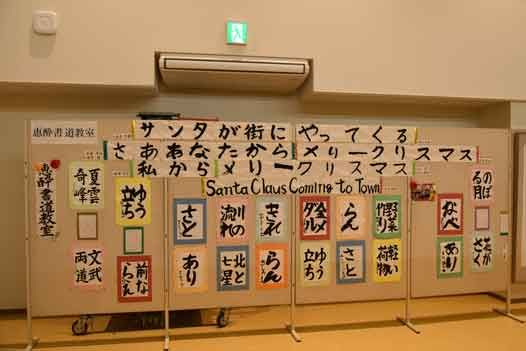 恵酔書道教室
サンタが街にやってくる
さああなたからメリークリスマス
私からメリークリスマス
Santa Claus Coming to Town
恵酔書道教室
夏雲奇峰
ゆう立ち
文武両道
前ならえ
さと
あり
流れ川
北と七星
きれ
らん
金メダル
ゆう立ち
らん
さと
野菜作り
軽い荷物
なべ
あり
のぼる月
花がさく